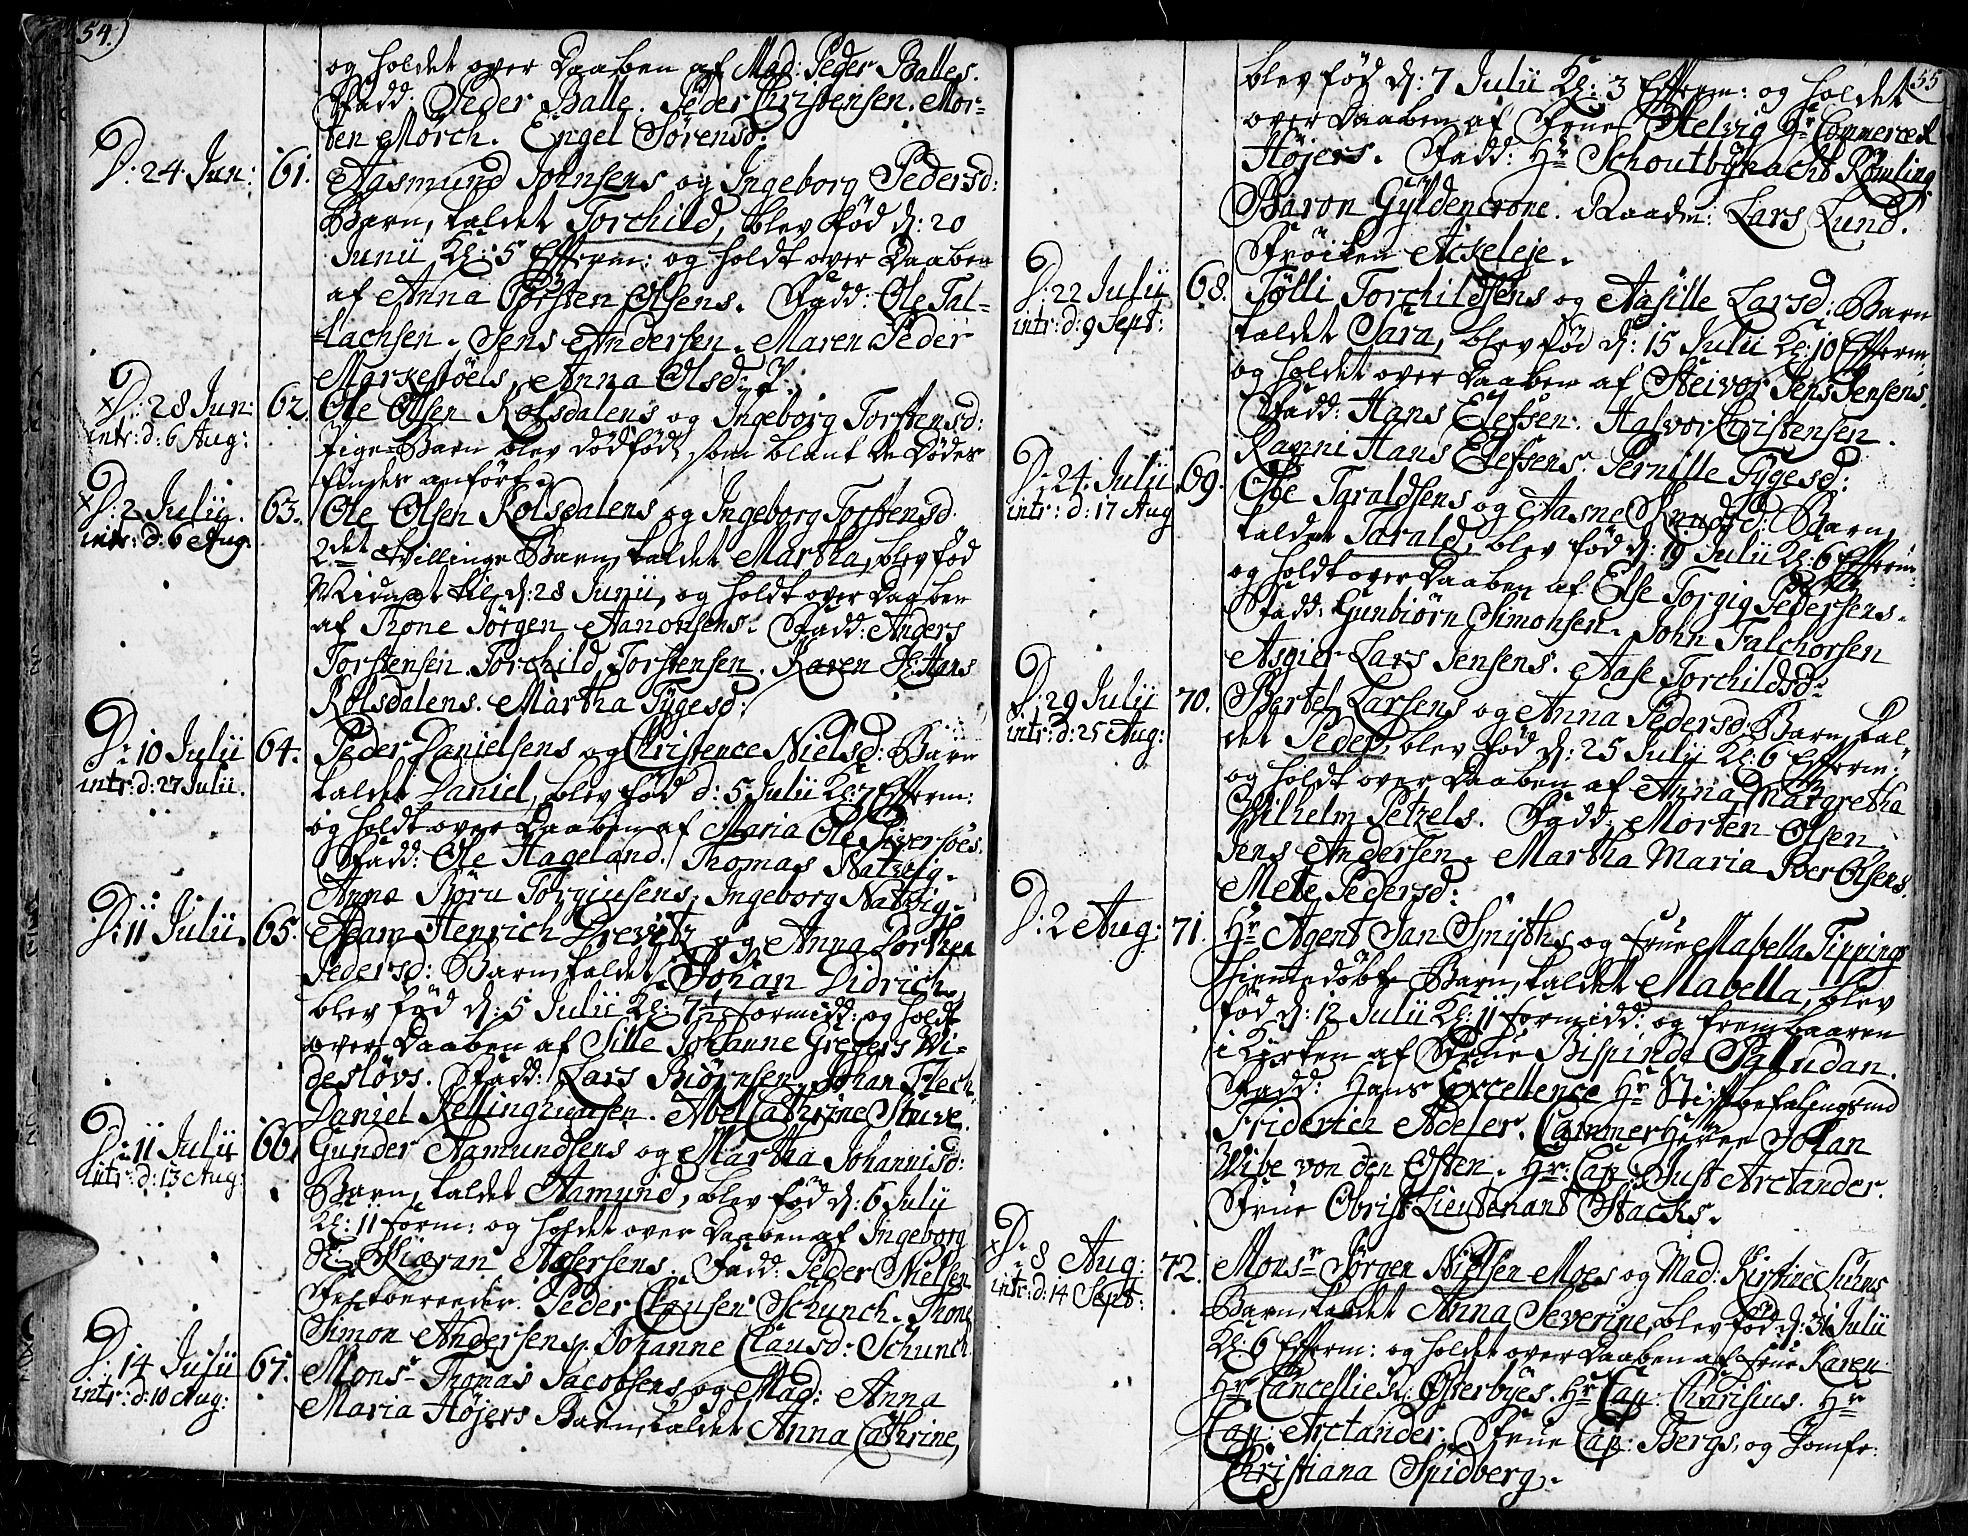 54.)
og holdet over Daaben af Mad: Peder Balles.
Fadd: Peder Balle. Peder Christensen. Mor-
ten Mörch. Engel Sörensd:
D: 24 Jun: 61. Aasmund Johnsens og Ingeborg Pedersd:
Barn, kaldet Torchild, blev föd d: 20
Junii Kl: 5 Efterm: og holdt over Daaben
af Anna Torsten Olsens. Fadd: Ole Fal-
lachsen. Jens Andersen. Maren Peder
Markestöels, Anna Olsd:
D: 28 Jun: 62. Ole Olsen Rolsdalens og Ingeborg Torstensd:
intr: d: 6 Aug: Pige-Barn blev dödföd, som blant de Döde
findes anfört.
D: 2 Julii. 63. Ole Olsen Rolsdalens og Ingeborg Torstensd.
intr: d: 6 Aug. 2det tvillinge Barn, kaldet Martha, blev föd
Midnat til d: 28 Junii, og holdt over Daaben
af Trone Jörgen Aanonsens. Fadd: Anders
Torstensen. Torchild Torstensen. Karen Hans
Rolsdalens. Martha Tygesd:
D: 10 Julii 64. Peder Danielsens og Christence Nielsd: Barn
intr: d: 27 Julii. kaldet Daniel, blev föd d: 5 Julii Kl: 7 Efterm:
og holdt over Daaben af Maria Ole Siversöes.
Fadd: Ole Hageland. Thomas Natvig.
Anna Jöru Torgiusens, Ingeborg Natvig.
D: 11 Julii. 65. Adam Henrich Drevitz og Anna Dorthea
Pedersd: Barn, kaldet Johan Didrich,
blev föd d: 5 Julii Kl: 7½ formidd: og holdt
over Daaben af Sille Johanne Gregers Wi-
deslövs. Fadd: Lars Biörnsen, Johan Flech.
Daniel Kellinghuusen. Abel Cathrine Stuve.
D: 11 Julii 66. Gunder Aamundsens og Martha Johannisd:
intr: d: 13 Aug: Barn, kaldet Aamund, blev föd d: 6 Julii
Kl: 11 form: og holdet over Daaben af Ingeborg
Kiæran Assersens. Fadd: Peder Nielsen
Peder Clausen Schunch. Trone
Simon Andersens, Johanne Clausd: Schunch.
D: 14 Julii 67. Monsr Thomas Jacobsens og Mad: Anna
intr: d: 10 Aug: Maria Höjers Barn, kaldet Anna Cathrine,
55
blev föd d: 7 Julii Kl: 3 Efterm: og holdet
over Daaben af Frue Helvig Hr Commerced
Höjers. Fadd: Hr Schoutbynacht Römling
Baron Gyldencrone. Raadm: Lars Lund.
Fröiken Ackeleje.
D: 22 Julii 68. Tölli Torchildsens og Aasille Larsd: Barn
intr: d: 9 Sept: kaldet Sara, blev föd d: 15 Julii Kl: 10 Efterm:
og holdet over Daaben af Steivor Jens Jensens.
Fadd: Hans Elefsen. Halvor Christensen.
Ranni Hans Elefsens. Pernille Tygesd:
D: 24 Julii 69. Ole Taraldsens og Aasne Knudsd: Barn,
intr: d: 17 Aug kaldet Tarald, blev föd d: 19 Julii Kl: 6 Efterm:
og holdt over Daaben af Else Torgig Pedersens.
Fadd: Gunbiörn Simonsen. John Falchorsen
Asgier Lars Jensens. Aase Torchildsd:
D: 29 Julii 70. Bertel Larsens og Anna Pedersd: Barn, kal-
intr: d: 25 Aug: det Peder, blev föd d: 25 Julii Kl: 6 Efterm:
og holdt over Daaben af Anna Margretha
Wilhelm Petzels. Fadd: Morten Olsen,
Jens Andersen. Martha Maria Iver Olsens.
Mete Pedersd:
D: 2 Aug: 71. Hr Agent Jan Smyths og frue Mabella Tippings
hiemmedöbte Barn, kaldet Mabella, blev
föd d: 12 Julii Kl: 11 formidd: og frembaaren
i Kirken af Frue Bispinde Paludan.
Fadd: Hans Excellence Hr Stiftbefalingsmd
Friderich Adeler. CammerHerre Johan
Wibe von den Osten. Hr: Cap: Just Arctander.
Frue Obrist Lieutenant Stacks.
D: 8 Aug: 72. Monsr Jörgen Nielsen Moes og Mad: Kirstine Suhms
intr: d: 14 Sept: Barn kaldet Anna Severine, blev föd d: 31 Julii
Kl: 6 Efterm: og holdet over Daaben af frue Karen
Hr Cancellier: Österbyes. Hr Cap: Charisius. Hr
Cap: Arctander. Frue Cap: Bergs, og Jomfr:
Christiana Spidberg.